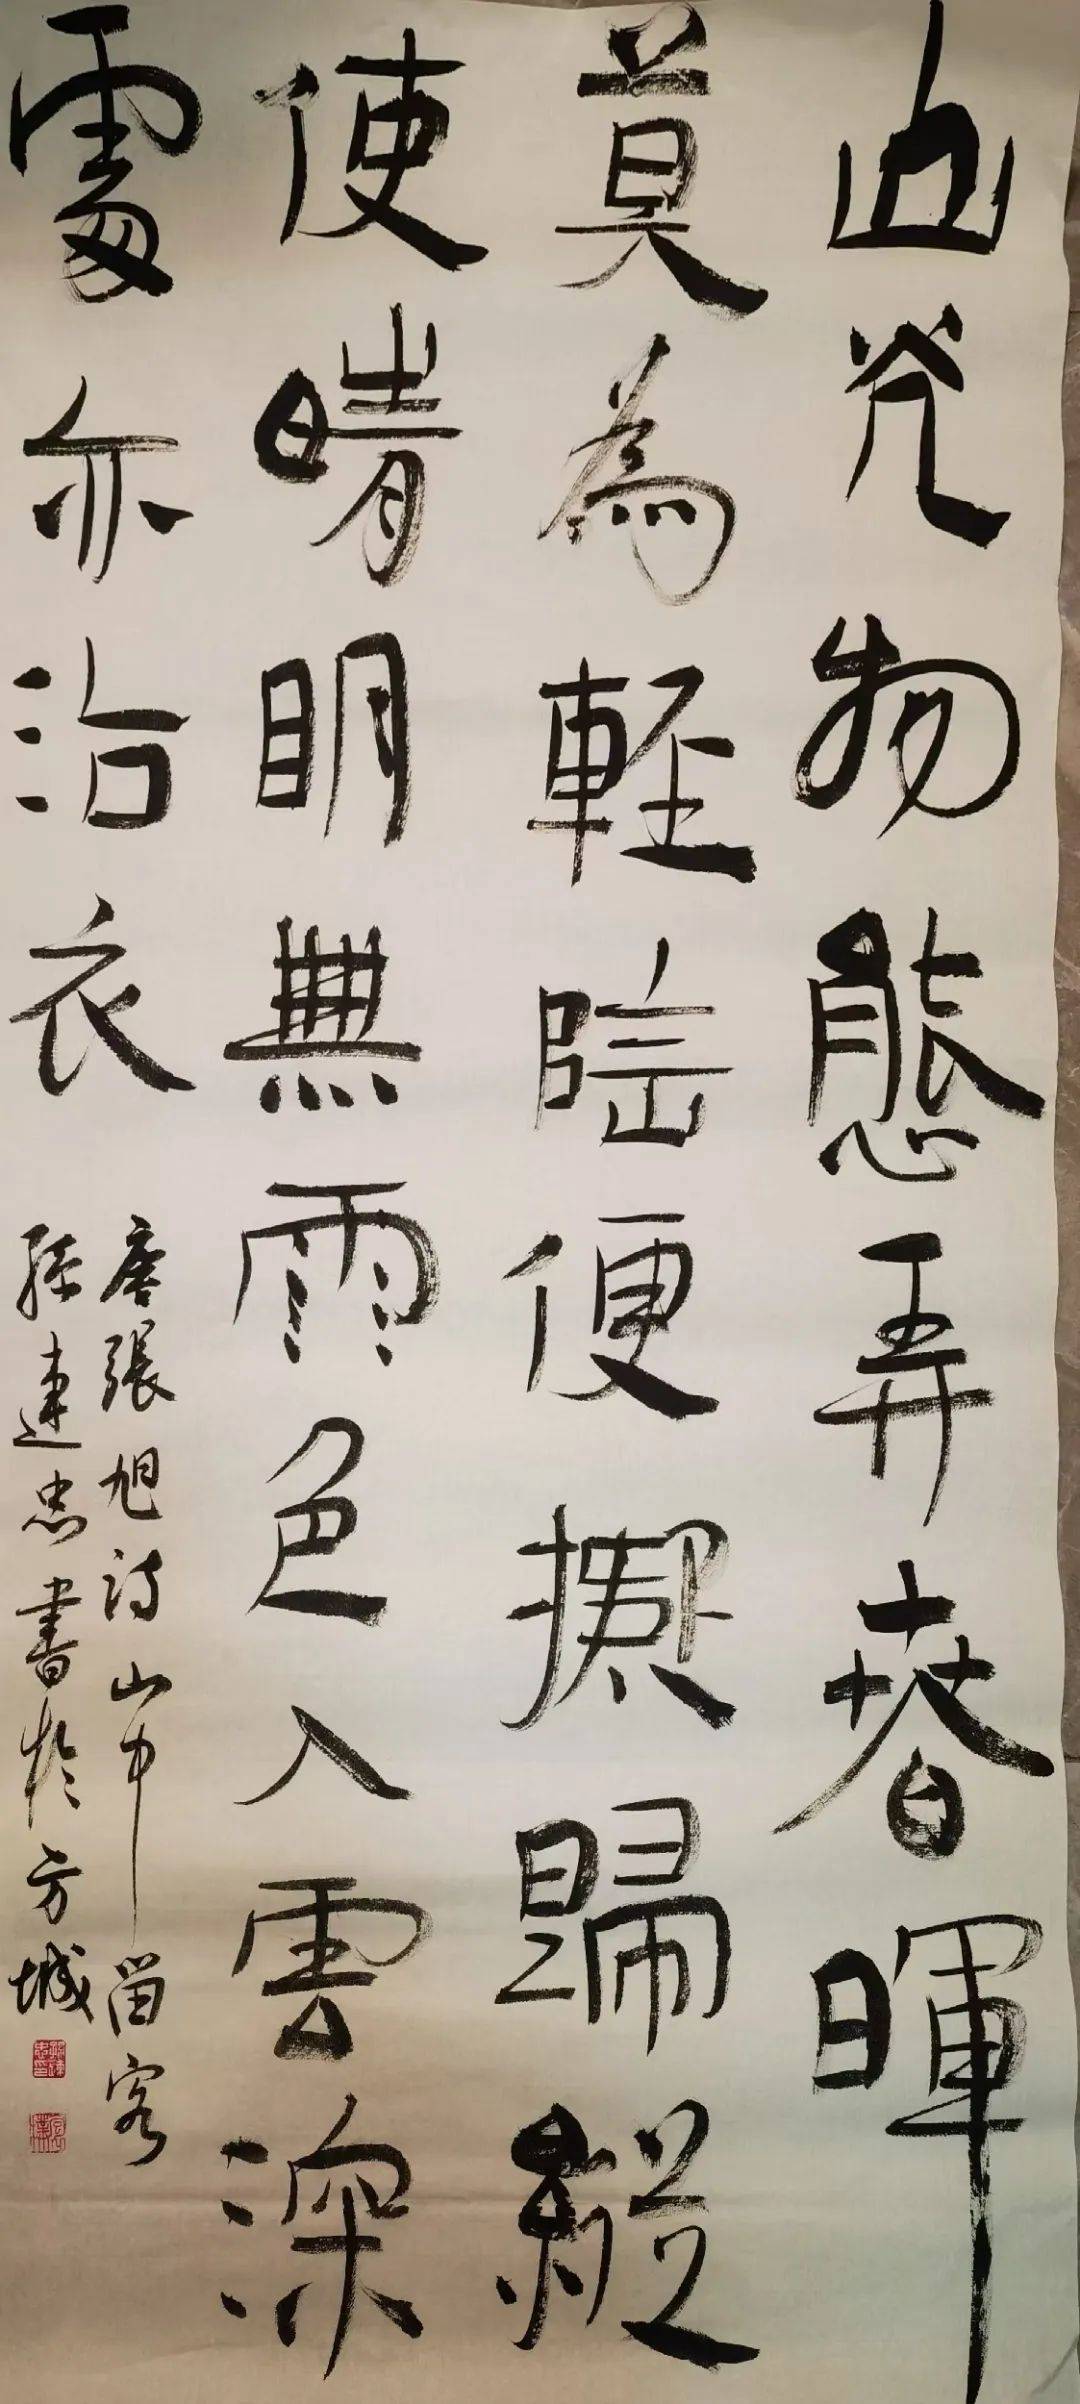 山光物態弄春暉
莫為輕陰便擬歸縱
使晴明無雨色入雲深
處亦沾衣
唐張旭詩山中留客
孫連忠書於方城